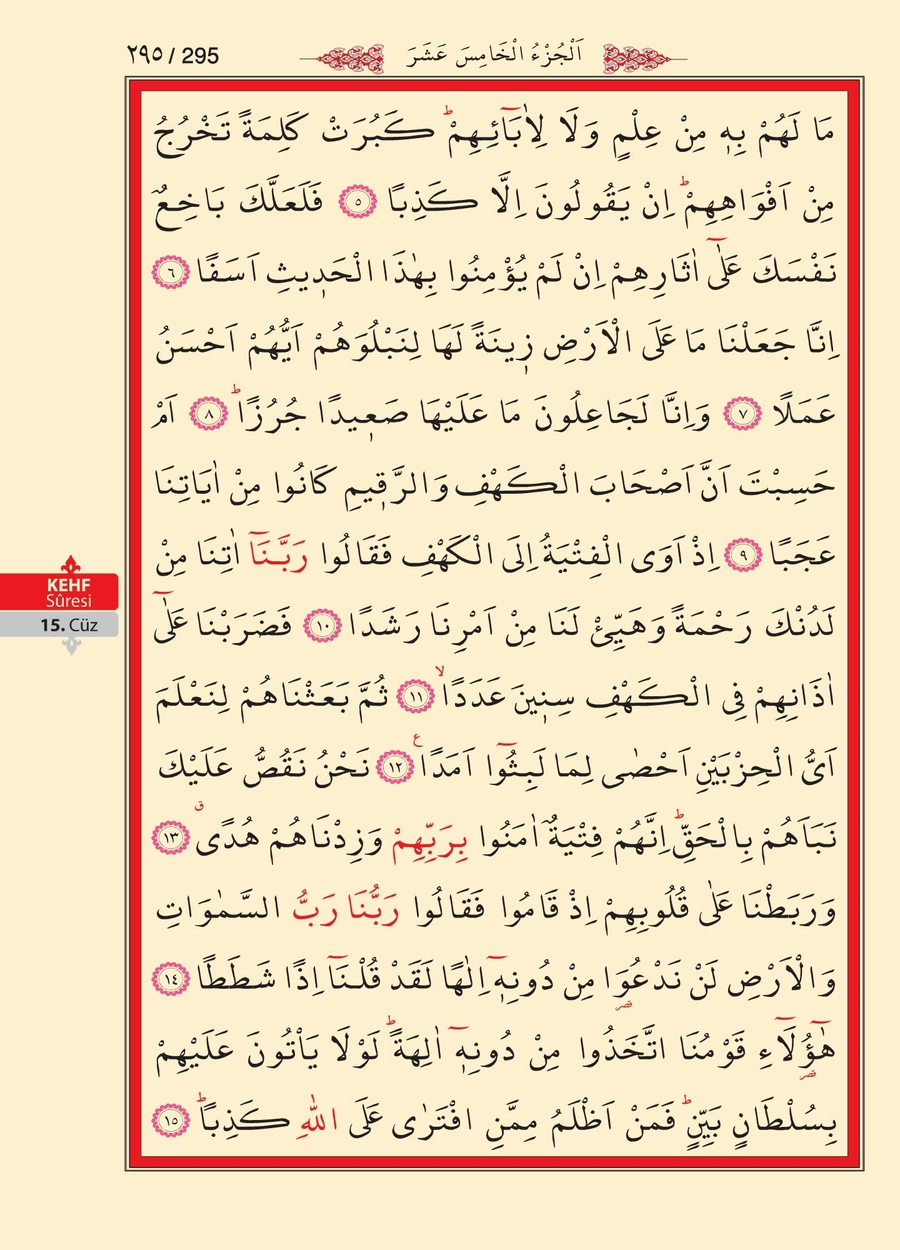 ٢٩٥ / 295
اَلْجُزْءُ الْخَامِسَ عَشَرَ
مَا لَهُمْ بِهٖ مِنْ عِلْمٍ وَلَا لِاٰبَٓائِهِمْۜ كَبُرَتْ كَلِمَةً تَخْرُجُ
مِنْ اَفْوَاهِهِمْۜ اِنْ يَقُولُونَ اِلَّا كَذِبًا ﴿٥﴾ فَلَعَلَّكَ بَاخِعٌ
نَفْسَكَ عَلٰٓى اٰثَارِهِمْ اِنْ لَمْ يُؤْمِنُوا بِهٰذَا الْحَدٖيثِ اَسَفًا ﴿٦﴾
اِنَّا جَعَلْنَا مَا عَلَى الْاَرْضِ زٖينَةً لَهَا لِنَبْلُوَهُمْ اَيُّهُمْ اَحْسَنُ
عَمَلًا ﴿٧﴾ وَاِنَّا لَجَاعِلُونَ مَا عَلَيْهَا صَعٖيدًا جُرُزًاۜ ﴿٨﴾ اَمْ
حَسِبْتَ اَنَّ اَصْحَابَ الْكَهْفِ وَالرَّقٖيمِ كَانُوا مِنْ اٰيَاتِنَا
عَجَبًا ﴿٩﴾ اِذْ اَوَى الْفِتْيَةُ اِلَى الْكَهْفِ فَقَالُوا رَبَّنَٓا اٰتِنَا مِنْ
لَدُنْكَ رَحْمَةً وَهَيِّئْ لَنَا مِنْ اَمْرِنَا رَشَدًا ﴿١٠﴾ فَضَرَبْنَا عَلٰٓى
اٰذَانِهِمْ فِى الْكَهْفِ سِنٖينَ عَدَدًاۙ ﴿١١﴾ ثُمَّ بَعَثْنَاهُمْ لِنَعْلَمَ
اَىُّ الْحِزْبَيْنِ اَحْصٰى لِمَا لَبِثُٓوا اَمَدًا ع ﴿١٢﴾ نَحْنُ نَقُصُّ عَلَيْكَ
نَبَاَهُمْ بِالْحَقِّۜ اِنَّهُمْ فِتْيَةٌ اٰمَنُوا بِرَبِّهِمْ وَزِدْنَاهُمْ هُدًى ق ﴿١٣﴾
وَرَبَطْنَا عَلٰى قُلُوبِهِمْ اِذْ قَامُوا فَقَالُوا رَبُّنَا رَبُّ السَّمٰوَاتِ
وَالْاَرْضِ لَنْ نَدْعُوَا مِنْ دُونِهٖٓ اِلٰهًا لَقَدْ قُلْنَٓا اِذًا شَطَطًا ﴿١٤﴾
هٰٓؤُ۬لَٓاءِ قَوْمُنَا اتَّخَذُوا مِنْ دُونِهٖٓ اٰلِهَةًۜ لَوْلَا يَاْتُونَ عَلَيْهِمْ
بِسُلْطَانٍ بَيِّنٍۜ فَمَنْ اَظْلَمُ مِمَّنِ افْتَرٰى عَلَى اللّٰهِ كَذِبًاۜ ﴿١٥﴾
KEHF
Sûresi
15. Cüz